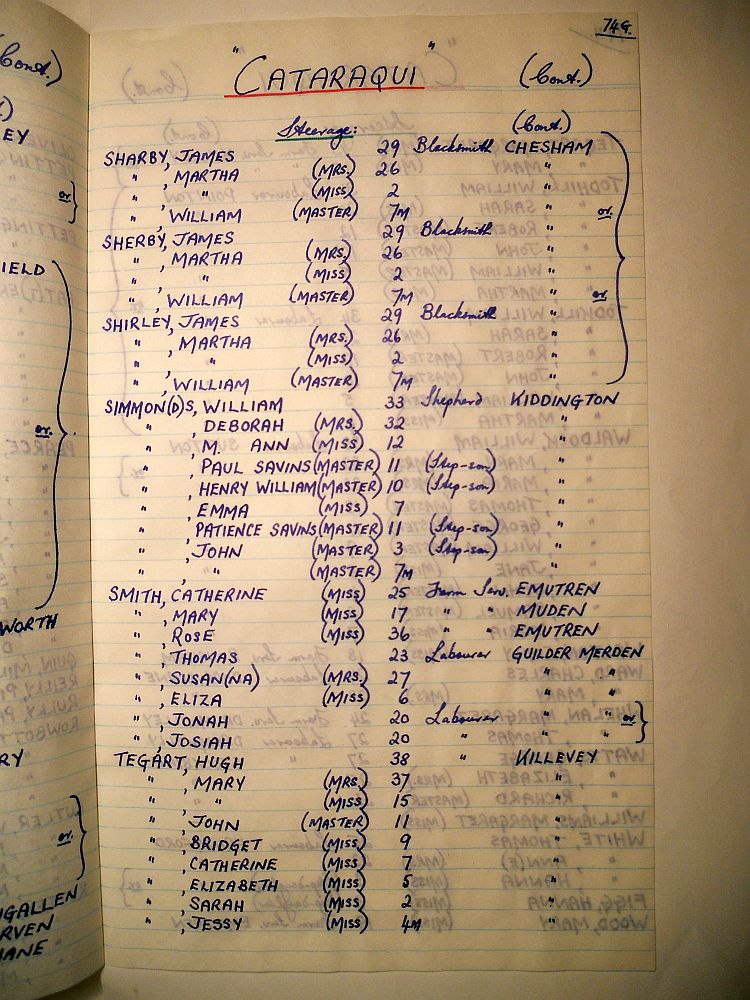 74G.
" CATARAQUI " (Cont.)
Steerage: (Cont.)
SHARBY, JAMES 29 Blacksmith CHESHAM
" , MARTHA (MRS.) 26 "
" , " (MISS) 2 "
" , WILLIAM (MASTER) 7M " or.
SHERBY, JAMES 29 Blacksmith "
" , MARTHA (MRS.) 26 "
" , " (MISS) 2 "
" , WILLIAM (MASTER) 7M " or.
SHIRLEY, JAMES 29 Blacksmith "
" , MARTHA (MRS.) 26 "
" , " (MISS) 2 "
" , WILLIAM (MASTER) 7M "
SIMMON(D)S, WILLIAM 33 Shepherd KIDDINGTON
" , DEBORAH (MRS.) 32 "
" , M. ANN (MISS) 12 "
" , PAUL SAVINS (MASTER) 11 (Step-son) "
" , HENRY WILLIAM (MASTER) 10 (Step-son) "
" , EMMA (MISS) 7 "
" , PATIENCE SAVINS (MASTER) 11 (Step-son) "
" , JOHN (MASTER) 3 (Step-son) "
" , " (MASTER) 7M "
SMITH, CATHERINE (MISS) 25 Farm Serv. EMUTREN
" , MARY (MISS) 17 " " MUDEN
" , ROSE (MISS) 36 " " EMUTREN
" , THOMAS 23 Labourer GUILDER MERDEN
" , SUSAN(NA) (MRS.) 27 " "
" , ELIZA (MISS) 6 " "
" , JONAH 20 Labourer " " or.
" , JOSIAH 20 " " "
TEGART, HUGH 38 " KILLEVEY
" , MARY (MRS.) 37 "
" , " (MISS) 15 "
" , JOHN (MASTER) 11 "
" , BRIDGET (MISS) 9 "
" , CATHERINE (MISS) 7 "
" , ELIZABETH (MISS) 5 "
" , SARAH (MISS) 2 "
" , JESSY (MISS) 4M "